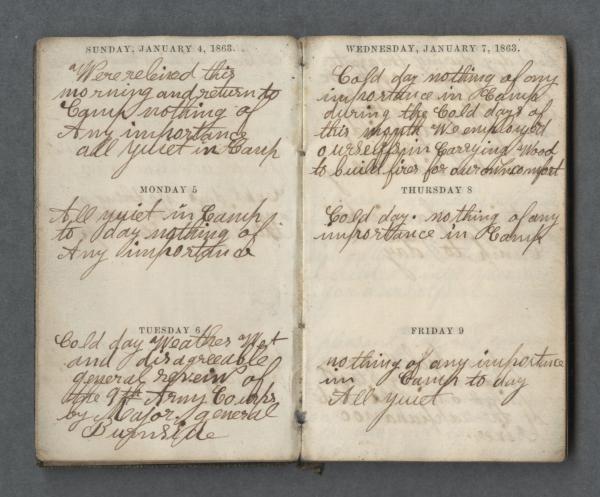 SUNDAY, JANUARY 4, 1863.
Were releived this
morning and return to
Camp nothing of
Any importance
all quiet in Camp
MONDAY 5
All quiet in Camp
to day nothing of
Any importance
TUESDAY 6
Cold day Weather Wet
and disagreeable
general reveiw of
the 9th Army Courps
by Major, general
Burnside
WEDNESDAY, JANUARY 7, 1863.
Cold day nothing of any
importance in Camp
during the Cold days of
this month We employed
ourselfs in Carrying Wood
to build fires for our
THURSDAY 8
Cold day. nothing of any
importance in Camp
FRIDAY 9
nothing of any importance
in Camp to day
All quiet